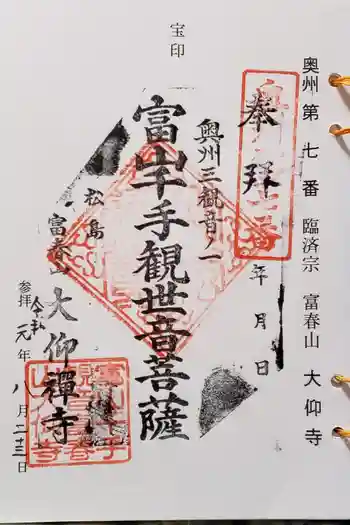 奥州 第 七 番 臨済宗 富春山 大仰寺
宝印
奉拝
奥州三観音ノ一
年 月 日
富山千手観世音菩薩
松島
富春山
大仰禅寺
参拝 令和元年 八月二十三日